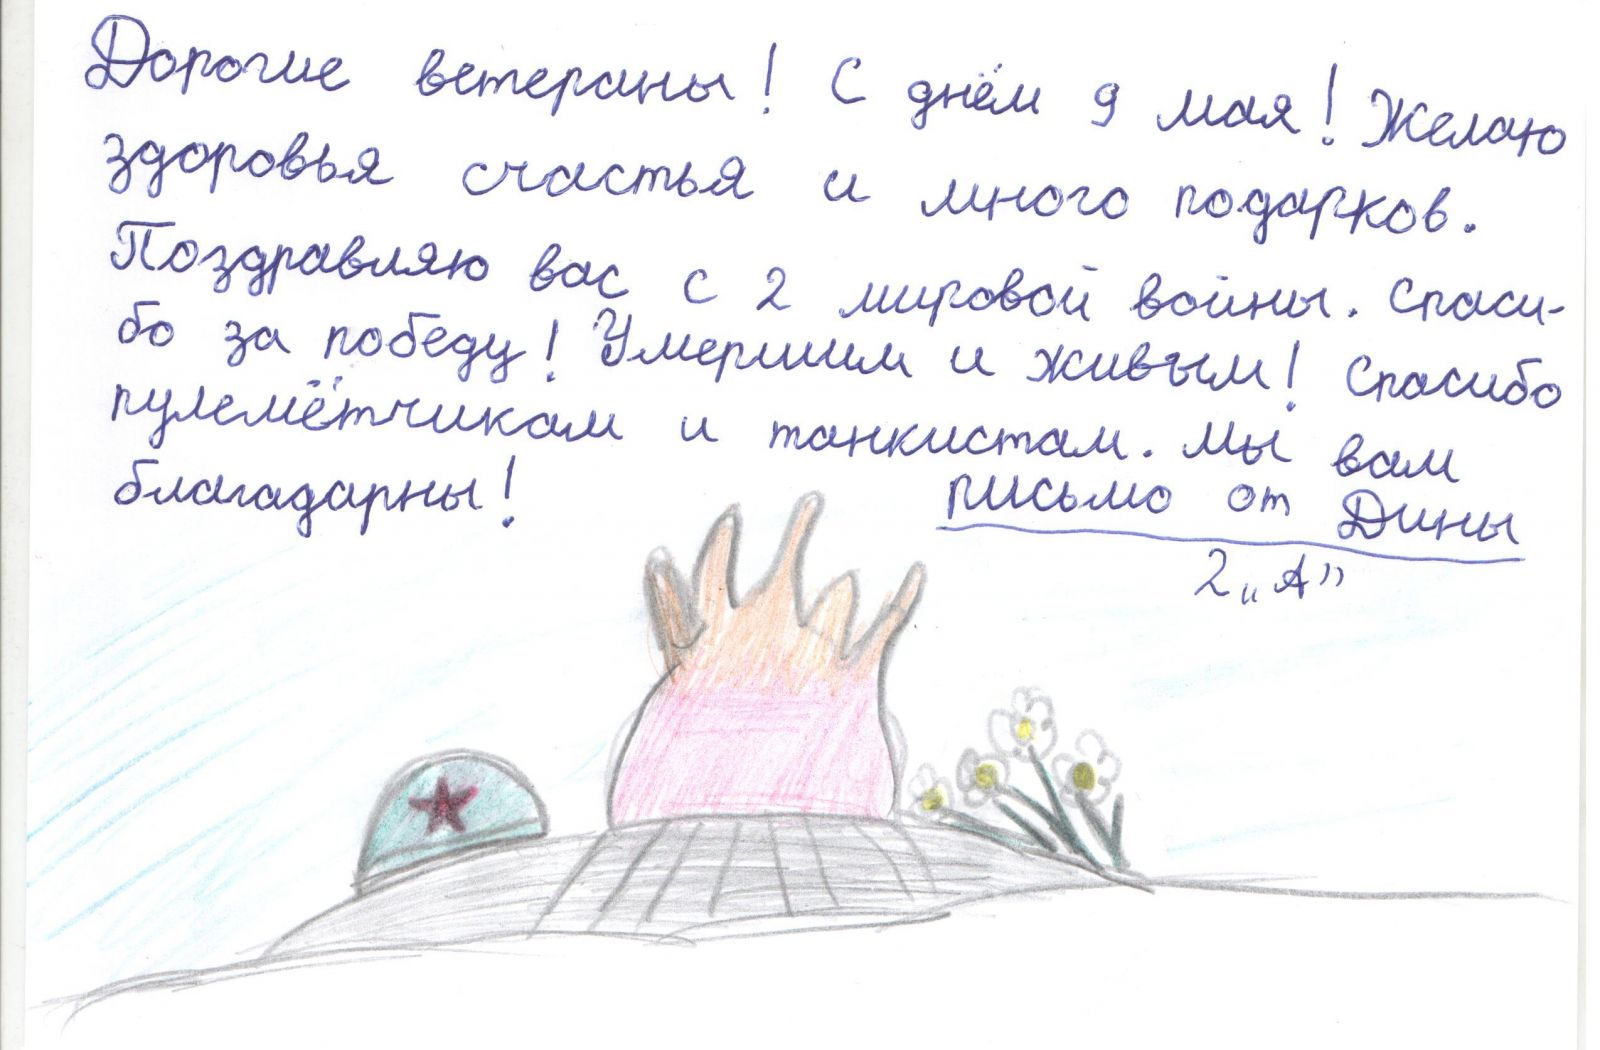 Дорогие ветераны! С днём 9 мая! Желаю
здоровья счастья и много подарков.
Поздравляю вас с 2 мировой войны. Спаси-
бо за победу! Умершим и живым! Спасибо
пулемётчикам и танкистам. Мы вам
благадарны!
письмо от Дины
2 „А”